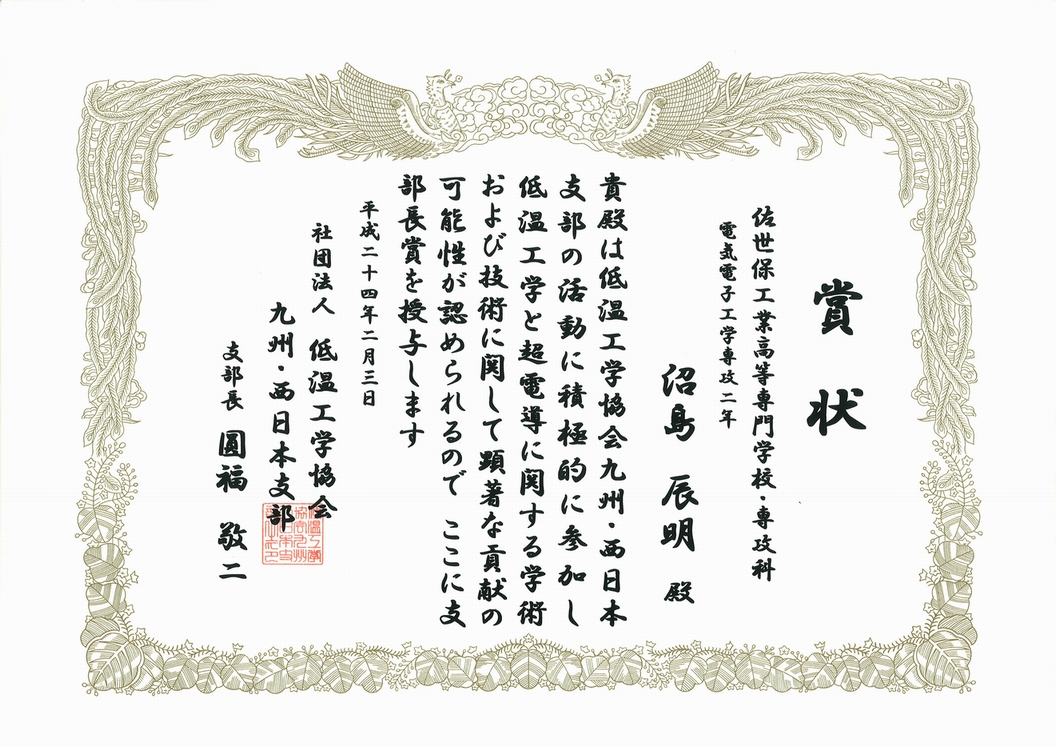 賞状
佐世保工業高等専門学校・専攻科
電気電子工学専攻二年
沼島 辰明 殿
貴殿は低温工学協会九州・西日本
支部の活動に積極的に参加し
低温工学と超電導に関する学術
および技術に関して顕著な貢献の
可能性が認められるので ここに支
部長賞を授与します
平成二十四年二月三日
社団法人 低温工学協会
九州・西日本支部
支部長 圓福 敬二